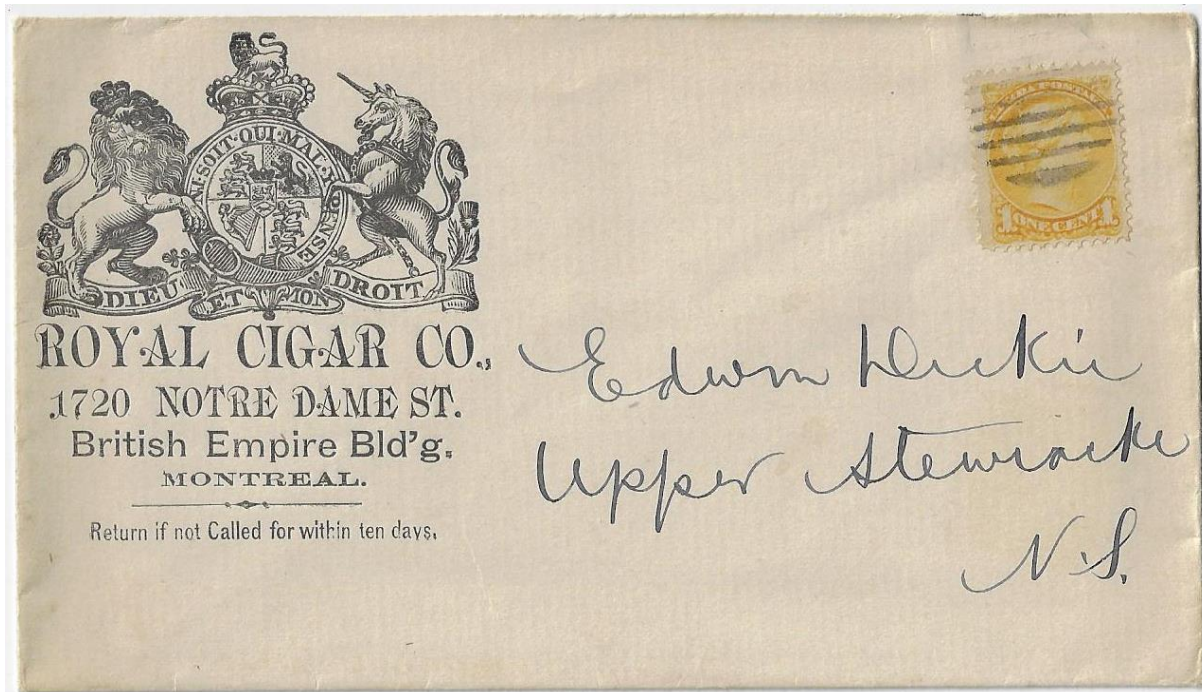 N·SOIT·QUI·MAL·Y·PENSE
DIEU ET MON DROIT
ROYAL CIGAR CO.,
1720 NOTRE DAME ST.
British Empire Bld'g.
MONTREAL.
Return if not Called for within ten days.
DA POSTAGE
1 ONE CENT 1
Edwin Dickie
Upper Stewiacke
N.S.